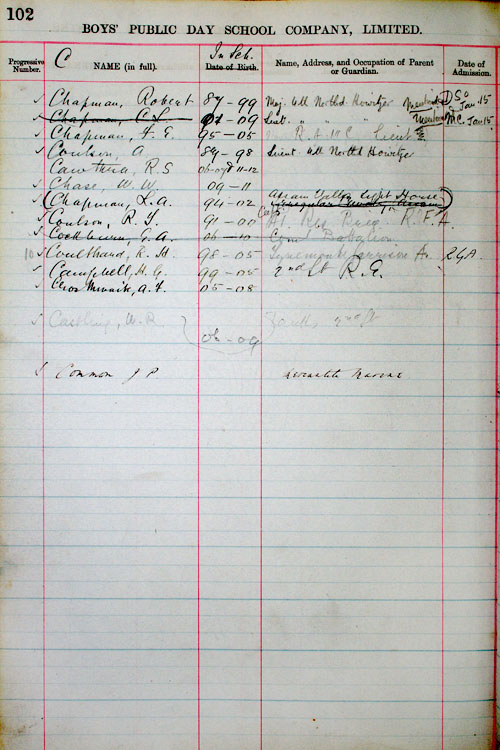 102
BOYS' PUBLIC DAY SCHOOL COMPANY, LIMITED.
Progressive Number. C NAME (in full). In Sch. Date of Birth. Name, Address, and Occupation of Parent or Guardian. Date of Admission.
Chapman, Robert 89-99 Maj. 4th Northd Howitzer Mentioned DSO Jan 15
Chapman, C.L. 01-09 Lieut. " " " Mentioned M.C. Jan 15
Chapman, F. E. 95-05 R.A.M.C. Lieut
Coulson, A 89-98 Lieut 4th Northd Howitzer
Cawthra, R.S 06-07 & 11-12
Chase, W.W. 09-11
Chapman, L.A. 94-02 Assam Valley Light Horse
Coulson, R. Y. 91-00 Brig. R.F.A.
Cockburn, G.A. 06-10 Battalion
Coulthard, R. H. 98-05 Tynemouth Garrison A. RGA.
Campbell, H.G. 99-05 2nd Lt R.E.
05-08
Castling, W.R. 2nd Lt
06-09
Common J P Mercantile Marine